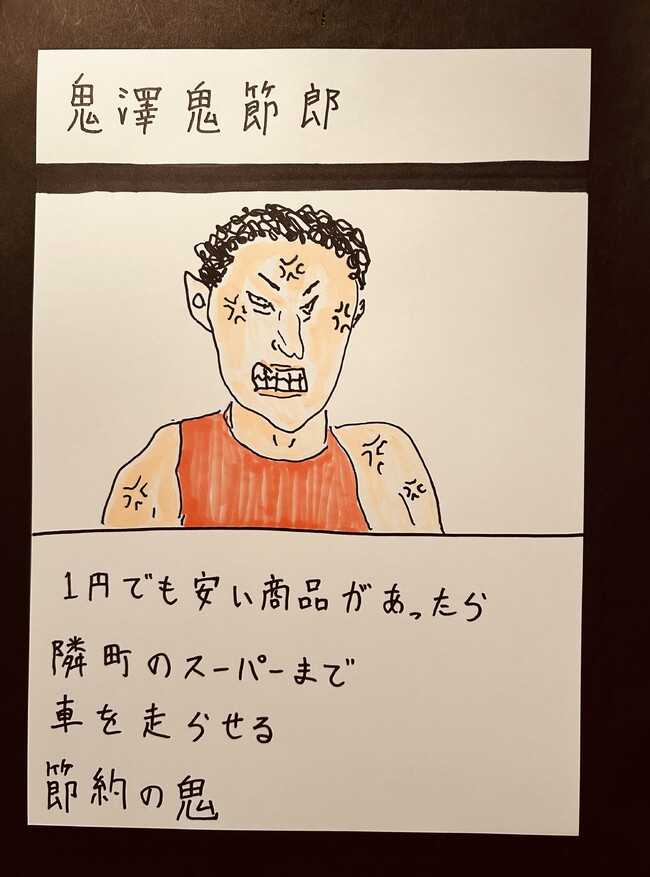 鬼澤鬼節郎
1円でも安い商品があったら
隣町のスーパーまで
車を走らせる
節約の鬼